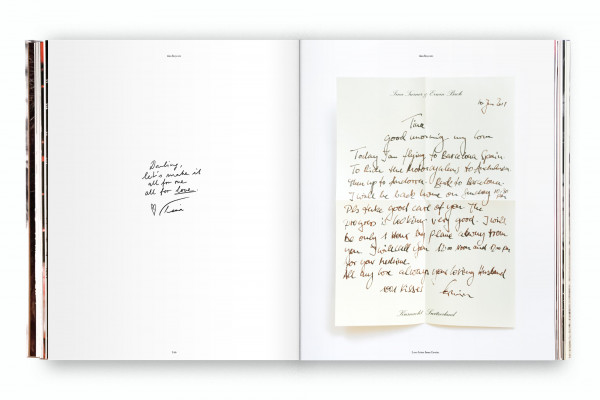 Darling,
let's make it
all for me
all for love.
Tina
Tina Turner & Erwin Bach
Tina
good morning my love
Today I am flying to Barcelona Spain
To Ride the Motorcycles to
then up to Andorra Back to Barcelona.
I will be back home on Sunday
Pls take good care of you The
progress is looking very good. I will
be only 1 Hour by plane away from
you I will call you 12:00 Noon and
for your Medicine.
All my love always your loving Husband
1001 Kisses Erwin
Küsnacht Switzerland